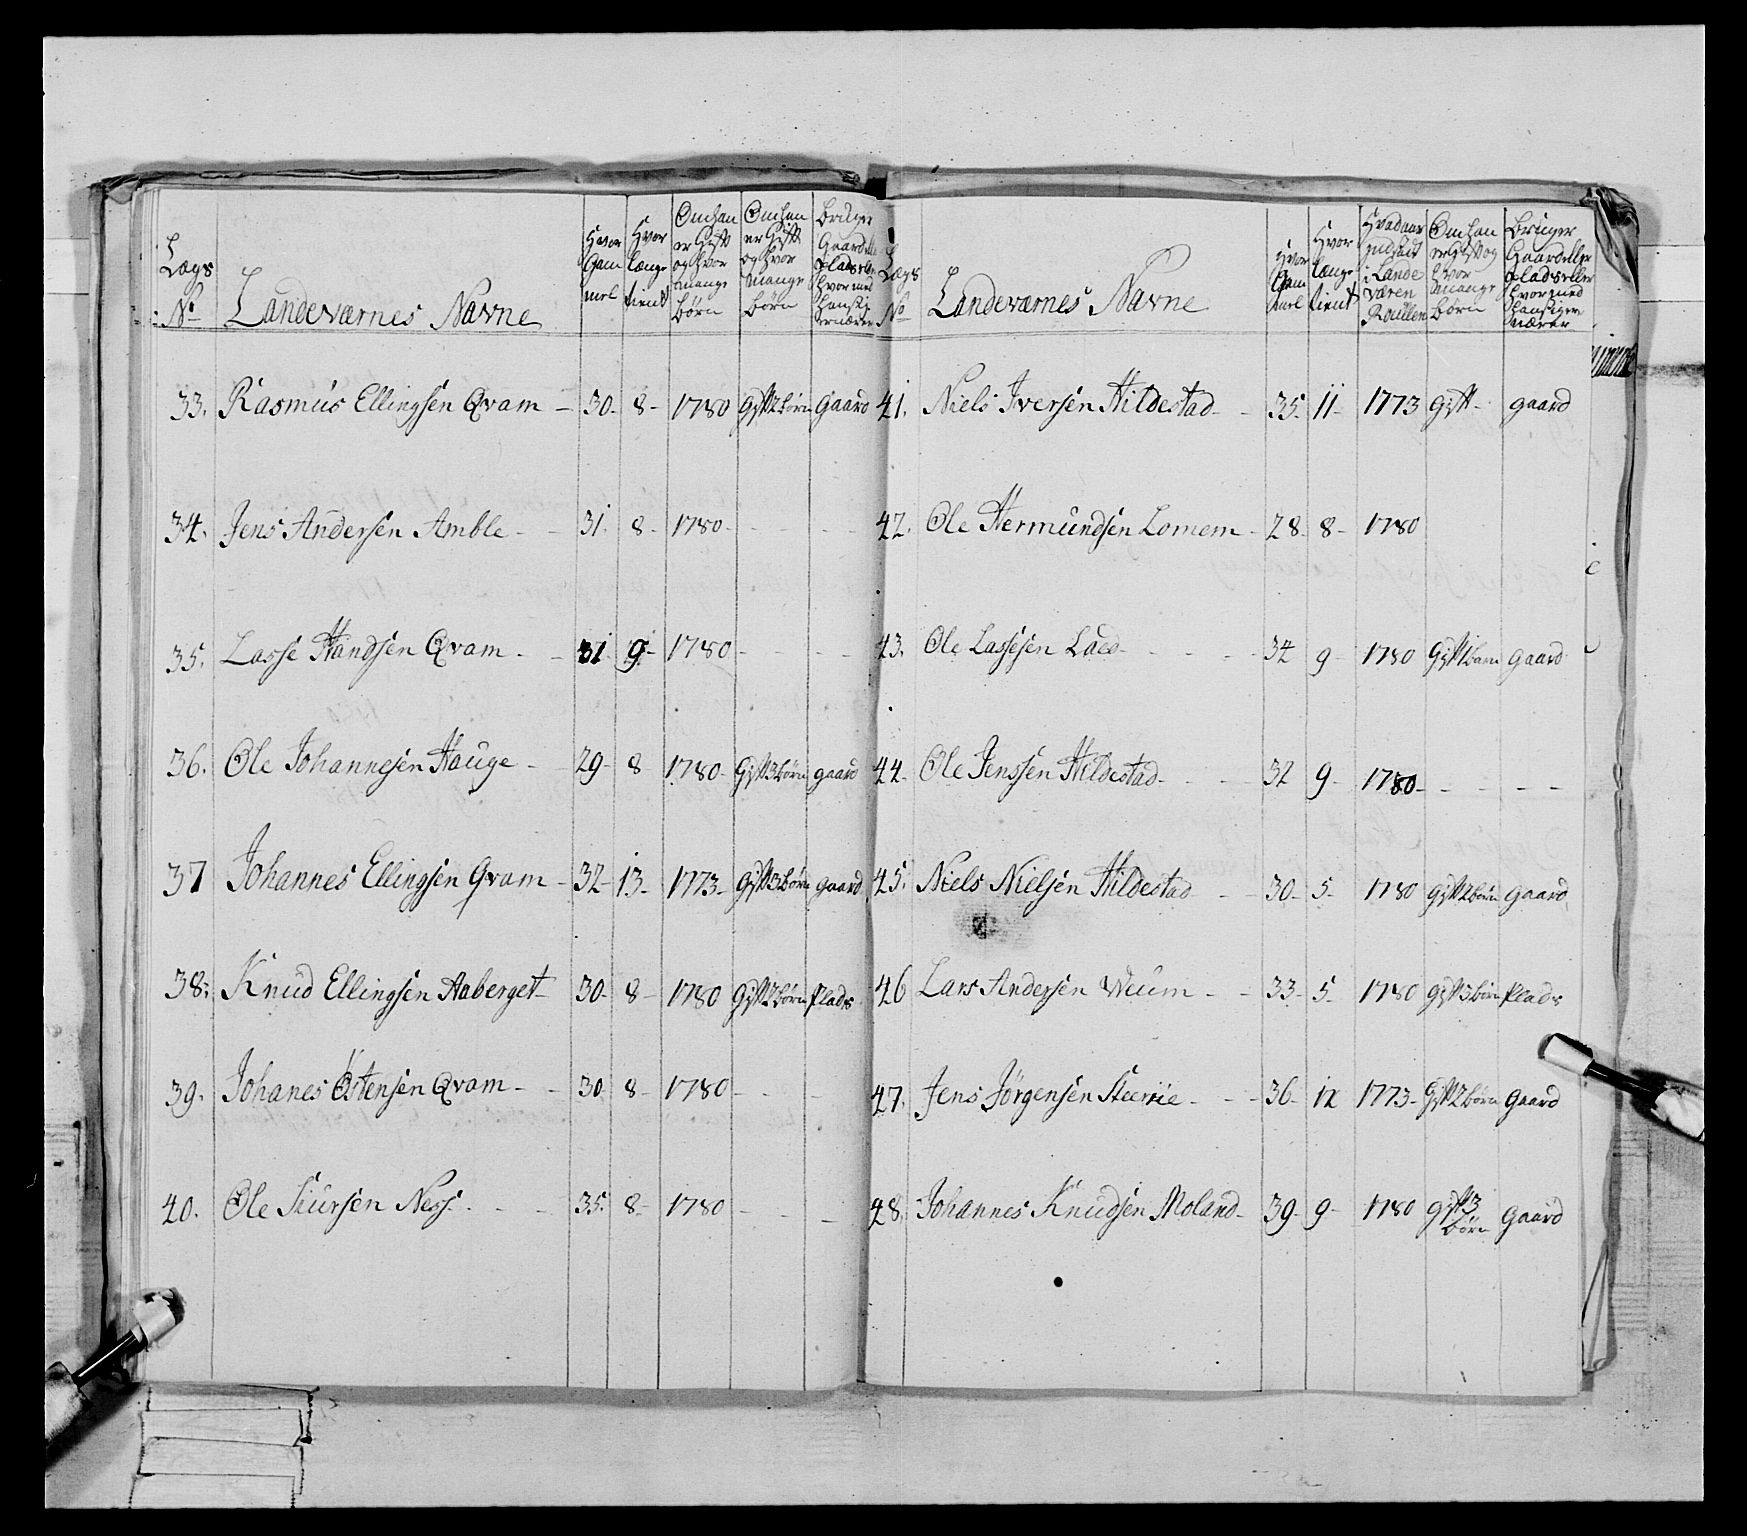 Lægs No
Landeværnes Navne
Hvor Gam mel
Hvor længe tient
Om han er Gift og hvor mange børn
Om han er Gift og hvor mange børn
Bruger Gaard
33. Rasmus Ellingsen Qvam - 30- 8- 1780 Gift 2 børn Gaard
34. Jens Andersen Amble - 31. 8- 1780-
35. Lasse Handsen Qvam - 31 9- 1780-
36. Ole Johannesen Hauge - 29- 8 1780- Gift 3 børn gaard
37 Johannes Ellingsen Qvam - 32- 13- 1773- Gift 3 børn gaard
38. Knud Ellingsen Aaberget- 30- 8- 1780 Gift 2 børn Plads
39. Johanes Østensen Qvam - 30 8- 1780-
40. Ole Siursen Ness - 35. 8- 1780-
Lægs No
Landeværnes Navne
Hvor Gam mel
Hvor længe tient
Hvad aar indsadt i Lande væren Roullen
Om han er Gift og hvor mange børn
Bruger Gaard eller Plads eller hvor med han sig er nærer
41. Niels Iversen Hildestad - 35. 11- 1773 Gift- gaard
42. Ole Hermundsen Lomem - 28- 8- 1780
43. Ole Lassesen - 34 9- 1780 Gift 1 barn gaard
44. Ole Jenssen Hildestad - 32 9- 1780-
45. Niels Nielsen Hildestad - 30- 5- 1780 gift 2 børn gaard
46 Lars Andersen Weum - 33- 5- 1780 gift 3 børn Plads
47. Jens Jörgensen - 36- 12 1773- Gift 2 børn gaard
48. Johannes Knudsen Moland- 39- 9- 1780 gift 3 børn gaard